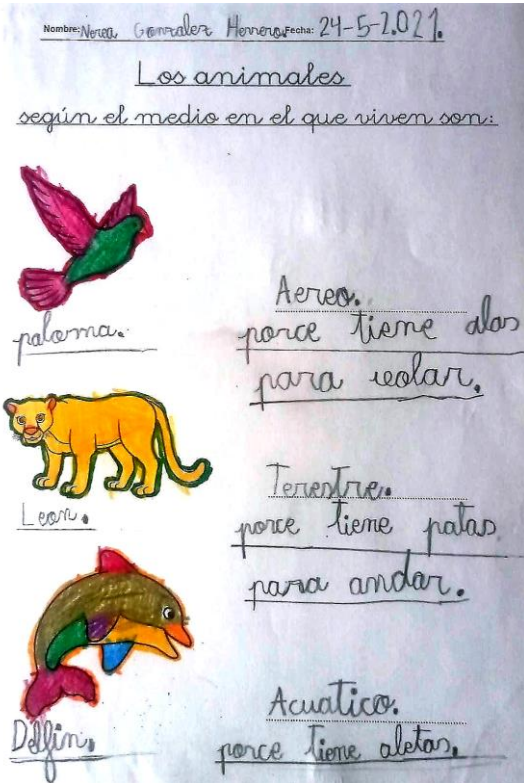 Nombre: Nerea Gonzalez Herrero. Fecha: 24-5-2.021.
Los animales
según el medio en el que viven son:
paloma.
Aereo.
porce tiene alas
para volar.
Leon.
Terestre.
porce tiene patas
para andar.
Delfin.
Acuatico.
porce tiene aletas.